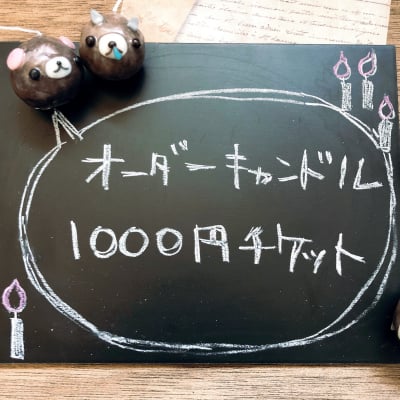 オーダーキャンドル
1000円チケット